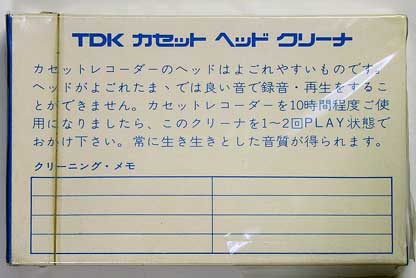 TDK カセット ヘッド クリーナ
カセットレコーダーのヘッドはよごれやすいものです。
ヘッドがよごれたまゝでは良い音で録音・再生をするこ
とができません。カセットレコーダーを10時間程度ご使
用になりましたら、このクリーナを1〜2回PLAY状態で
おかけ下さい。常に生き生きとした音質が得られます。
クリーニング・メモ